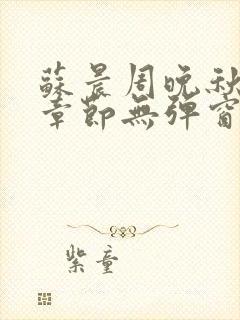 蘇晨周晚秋
章節無彈窗
紫童